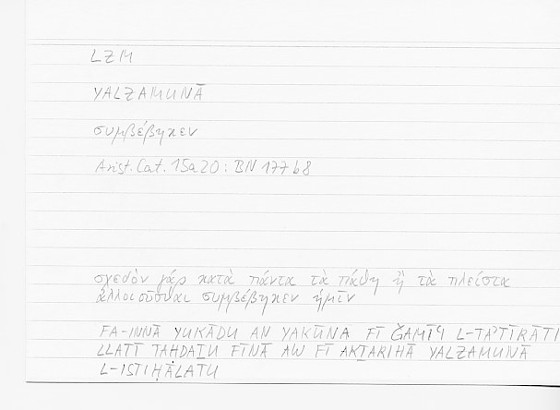 LZM
YALZAMUNĀ
συμβέβηκεν
Arist. Cat. 15a20 : BN 177b8
σχεδὸν γὰρ κατὰ πάντα τὰ πάθη ἢ τὰ πλεῖστα
ἀλλοιοῦσθαι συμβέβηκεν ἡμῖν
FA-INNĀ YUKĀDU AN YAKŪNA FĪ ǦAMĪʿI L-TAʾṮĪRĀTI
LLATĪ TAḤDAṮU FĪNĀ AW FĪ AKṮARIHĀ YALZAMUNĀ
L-ISTIḤĀLATU